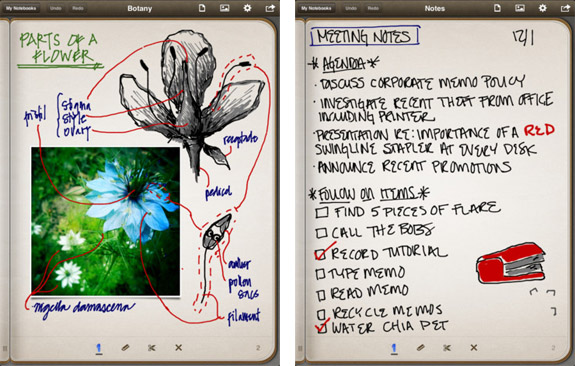 My Notebooks Undo Redo Botany
PARTS OF A
FLOWER
pistil
stigma
style
ovary
receptacle
pedicel
anther
pollen
sacs
filament
nigella damascena
1
2
My Notebooks Undo Redo Notes
MEETING NOTES 12/1
* AGENDA *
· DISCUSS CORPORATE MEMO POLICY
· INVESTIGATE RECENT THEFT FROM OFFICE
INCLUDING PRINTER
· PRESENTATION RE: IMPORTANCE OF A RED
SWINGLINE STAPLER AT EVERY DESK
· ANNOUNCE RECENT PROMOTIONS
* FOLLOW ON ITEMS *
FIND 5 PIECES OF FLARE
CALL THE BOBS
RECORD TUTORIAL
TYPE MEMO
READ MEMO
RECYCLE MEMOS
WATER CHIA PET
1
2